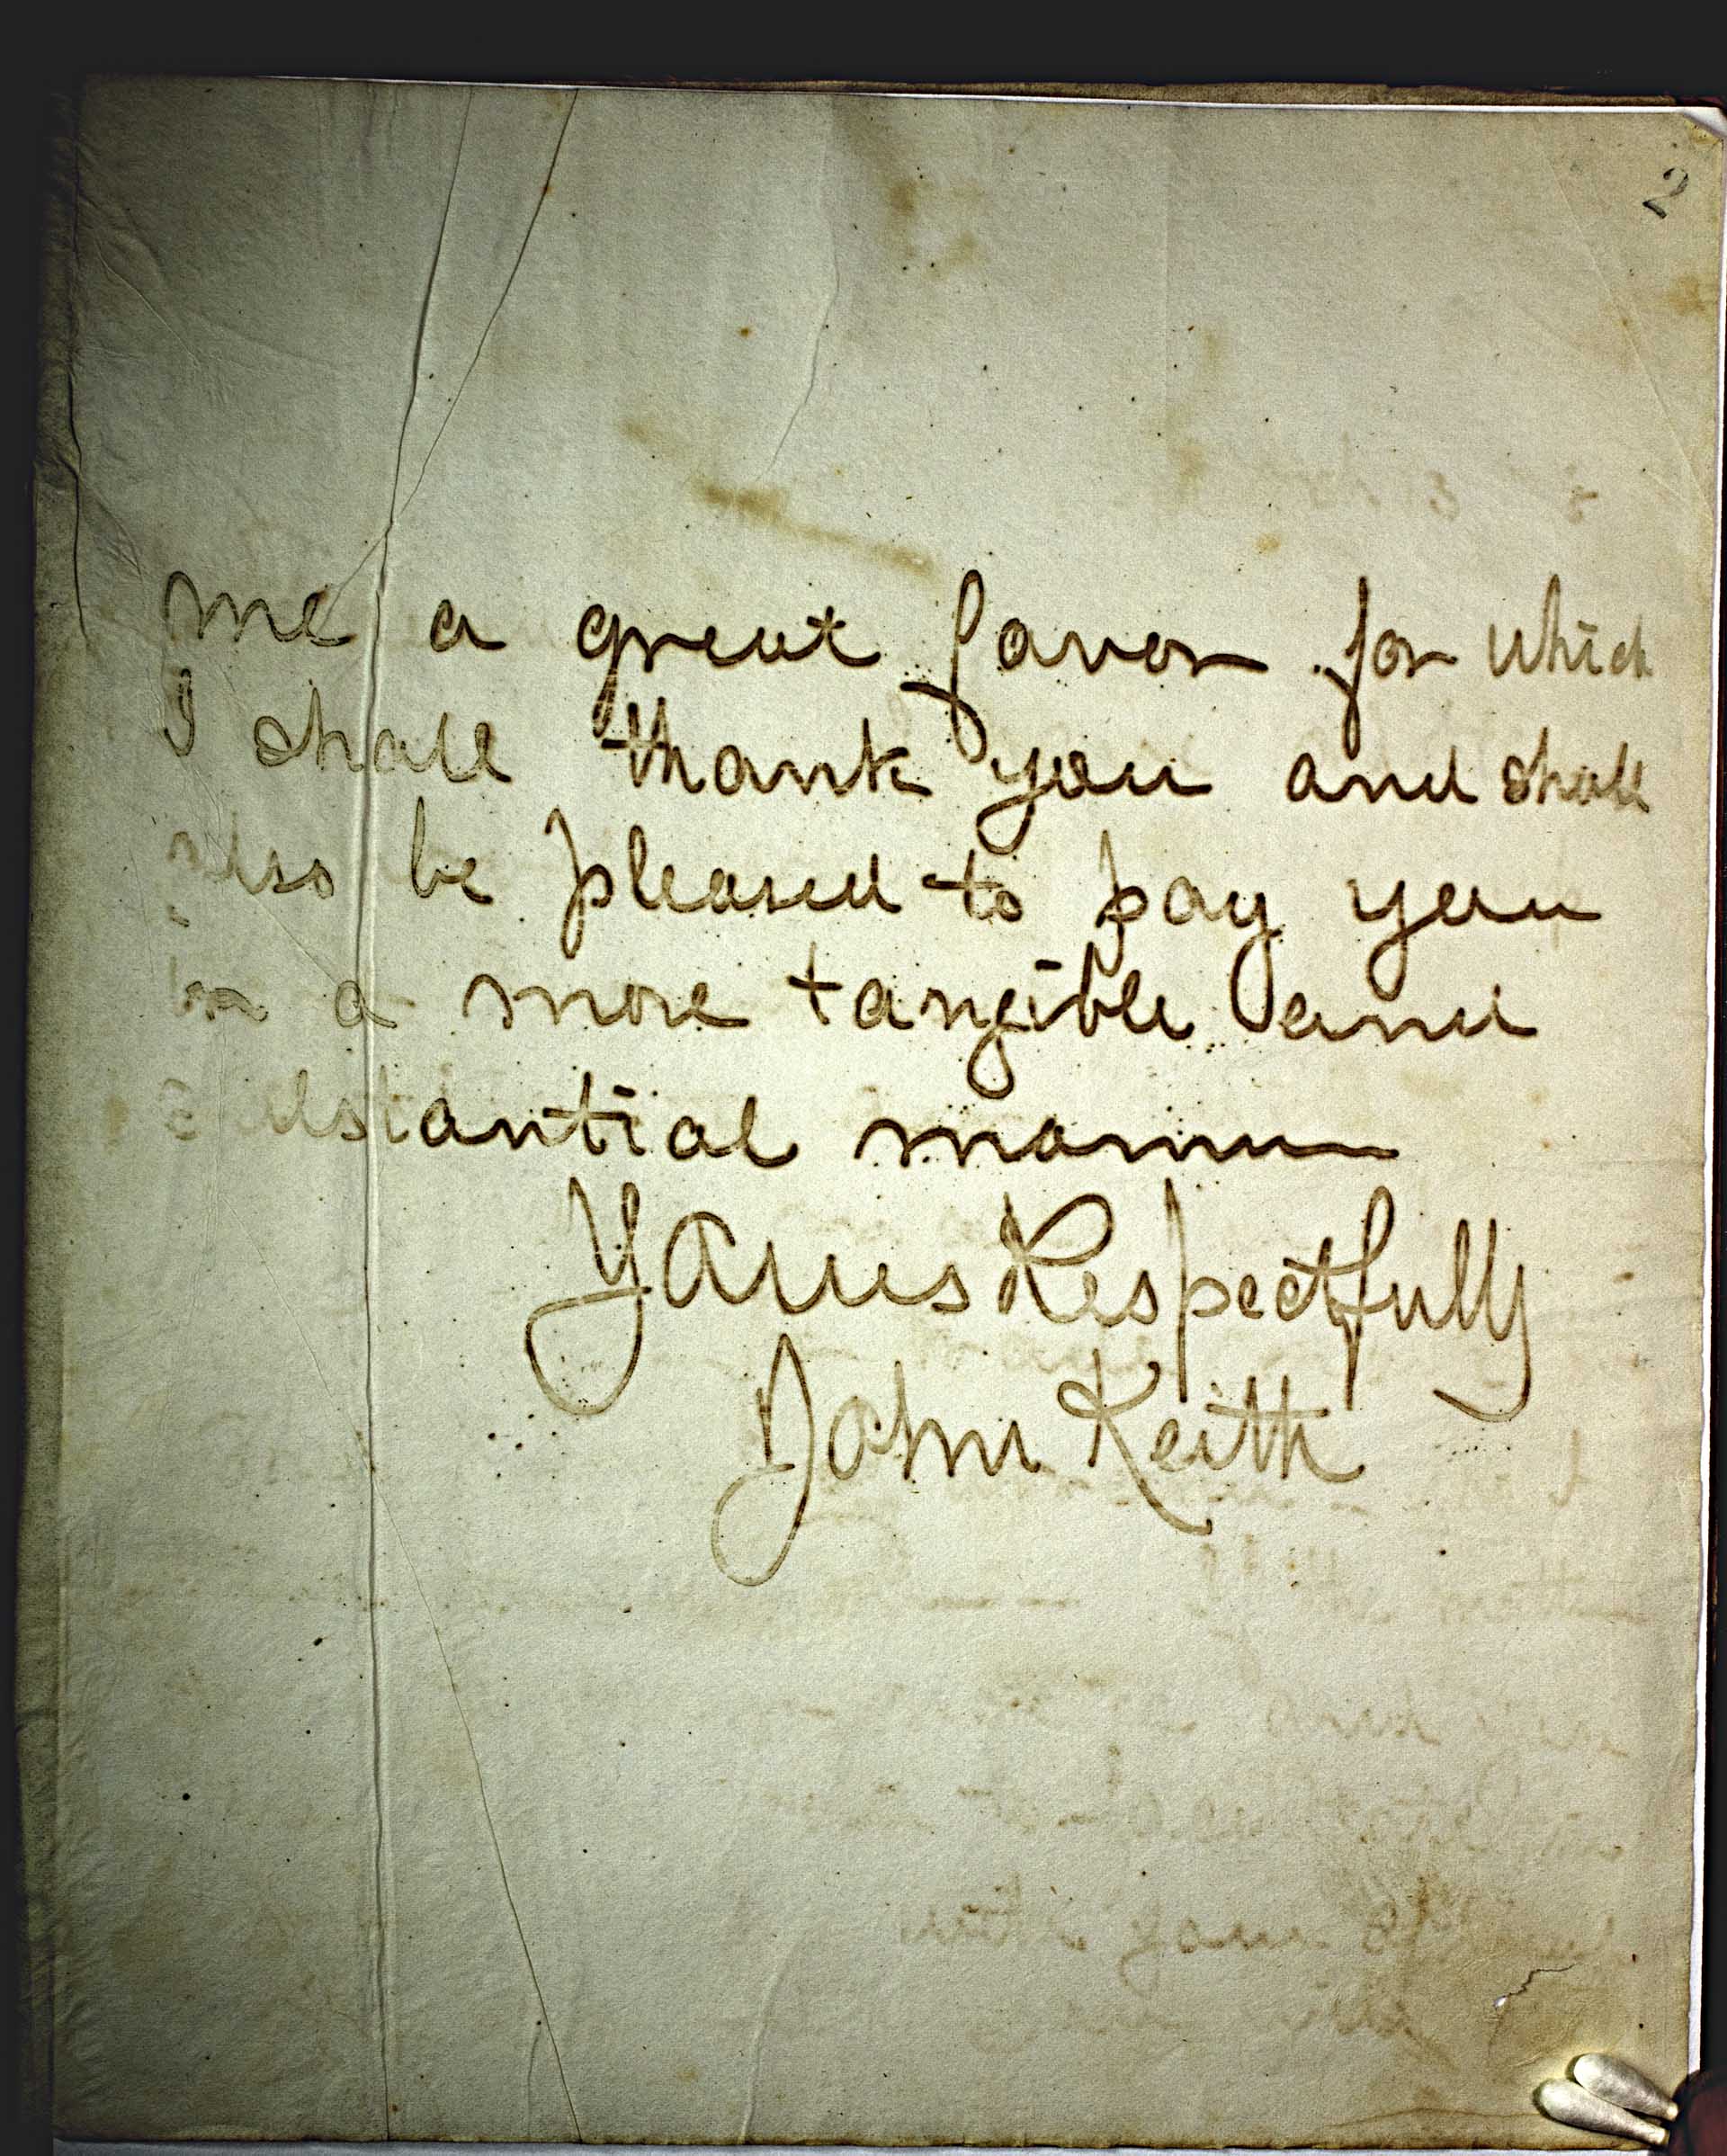 2
me a great favor for which
I shall thank you and shall
also be pleased to pay you
in a more tangible and
substantial manner
Yours Respectfully
John Keith